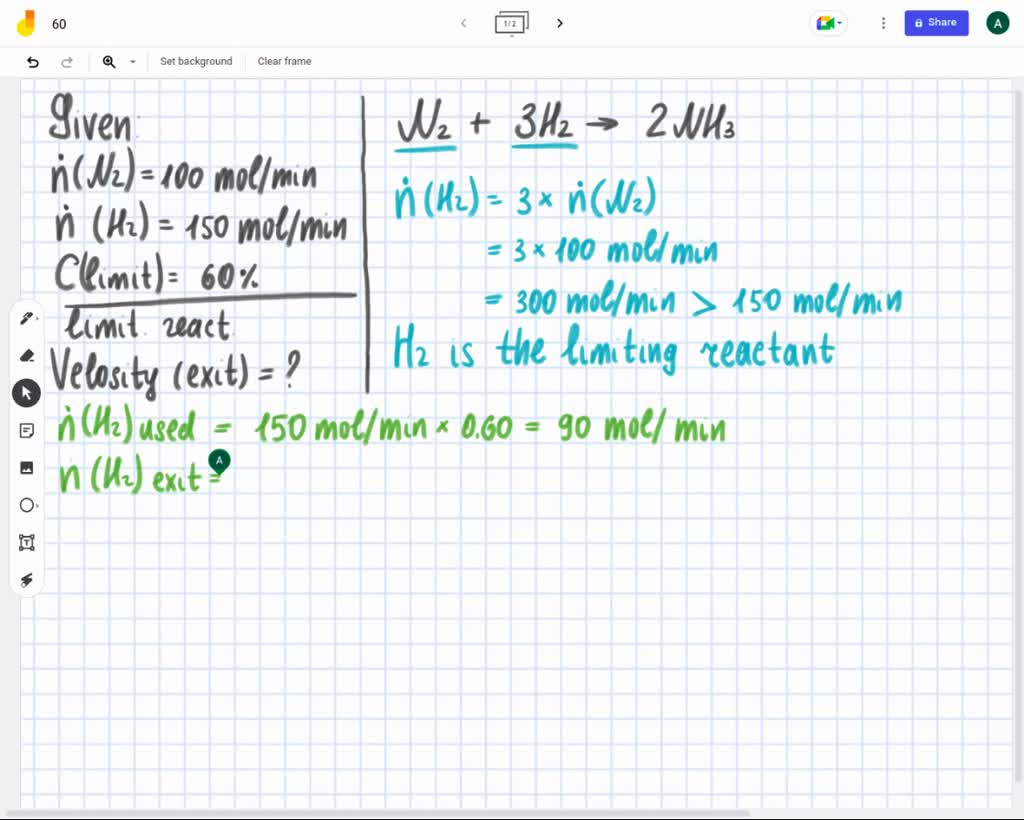 60
1/2
Share
A
Set background
Clear frame
Given:
ṅ(N₂) = 100 mol/min
ṅ (H₂) = 150 mol/min
C(limit) = 60%
limit. react.
Velosity (exit) = ?
N₂ + 3H₂ → 2NH₃
ṅ(H₂) = 3 × ṅ(N₂)
= 3 × 100 mol/min
= 300 mol/min > 150 mol/min
H₂ is the limiting reactant
ṅ(H₂) used = 150 mol/min × 0.60 = 90 mol/min
n(H₂) exit =
A